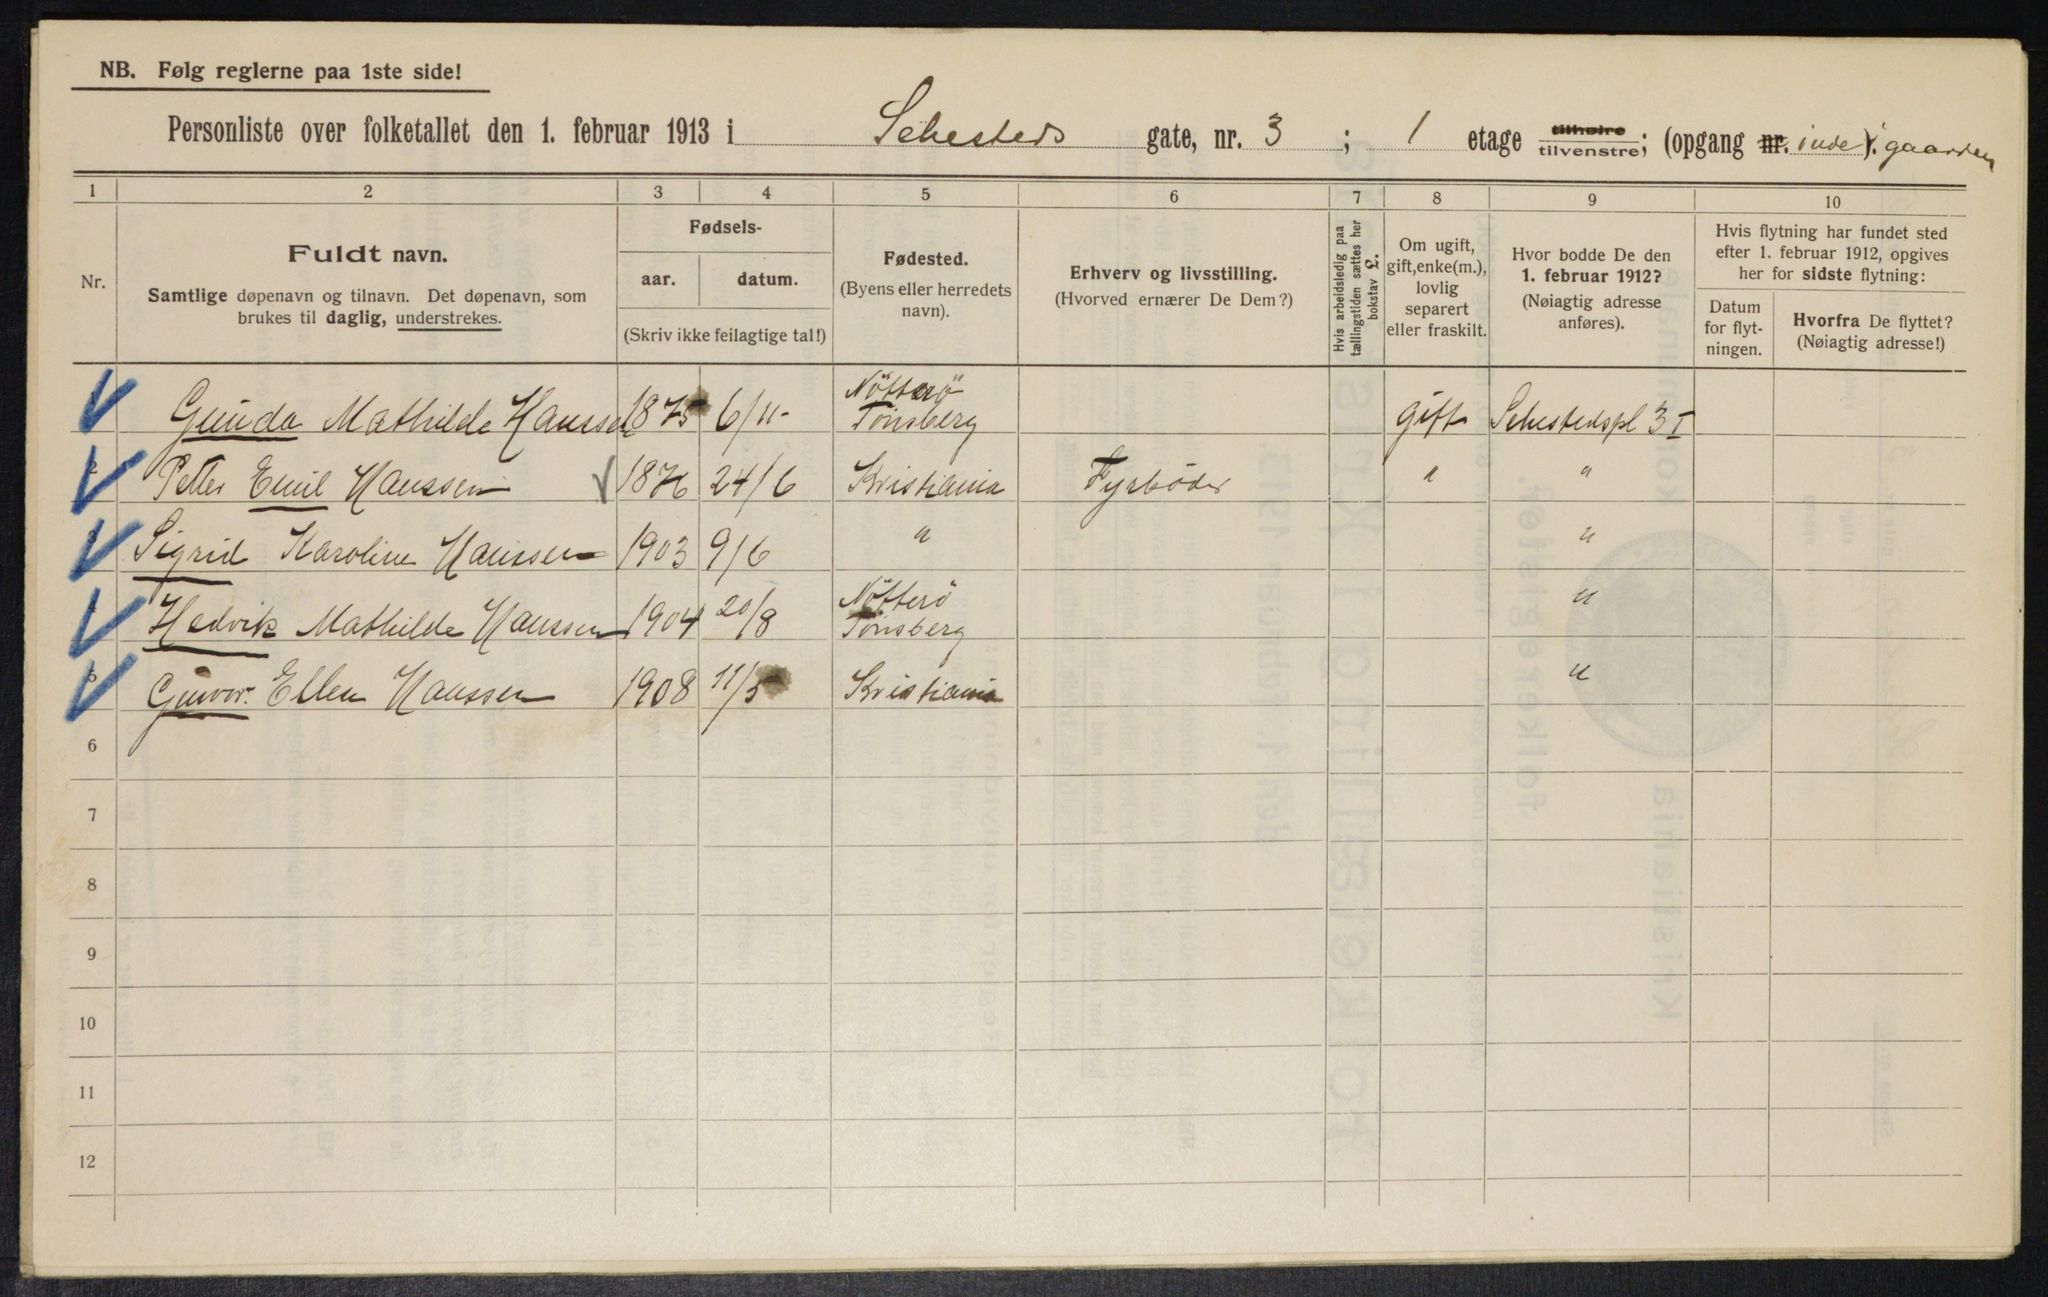 NB. Følg reglerne paa 1ste side!
Personliste over folketallet den 1. februar 1913 i Sehesteds gate, nr. 3 ; 1 etage tilhøire tilvenstre; (opgang nr. inde ). i gaarden
1 2 3 4 5 6 7 8 9 10
Nr.
Fuldt navn.
Samtlige døpenavn og tilnavn. Det døpenavn, som
brukes til daglig, understrekes.
Fødsels-
aar. datum.
(Skriv ikke feilagtige tal!)
Fødested.
(Byens eller herredets
navn).
Erhverv og livsstilling.
(Hvorved ernærer De Dem?)
Hvis arbeidsledig paa
tællingstiden sættes her
bokstav L.
Om ugift,
gift, enke(m.),
lovlig
separert
eller fraskilt.
Hvor bodde De den
1. februar 1912?
(Nøiagtig adresse
anføres).
Hvis flytning har fundet sted
efter 1. februar 1912, opgives
her for sidste flytning:
Datum
for flyt-
ningen.
Hvorfra De flyttet?
(Nøiagtig adresse!)
Gunda Mathilde Hanssen 1875 6/11- Nötterö Tönsberg gift Sehestedspl 3 I
2 Petter Emil Hanssen 1876 24/6 Kristiania Fyrböder " "
3 Sigrid Karoline Hanssen 1903 9/6 " "
4 Hedvik Mathilde Hanssen 1904 20/8 Nötterö Tönsberg "
5 Gunvor. Ellen Hanssen 1908 11/5 Kristiania "
6
7
8
9
10
11
12